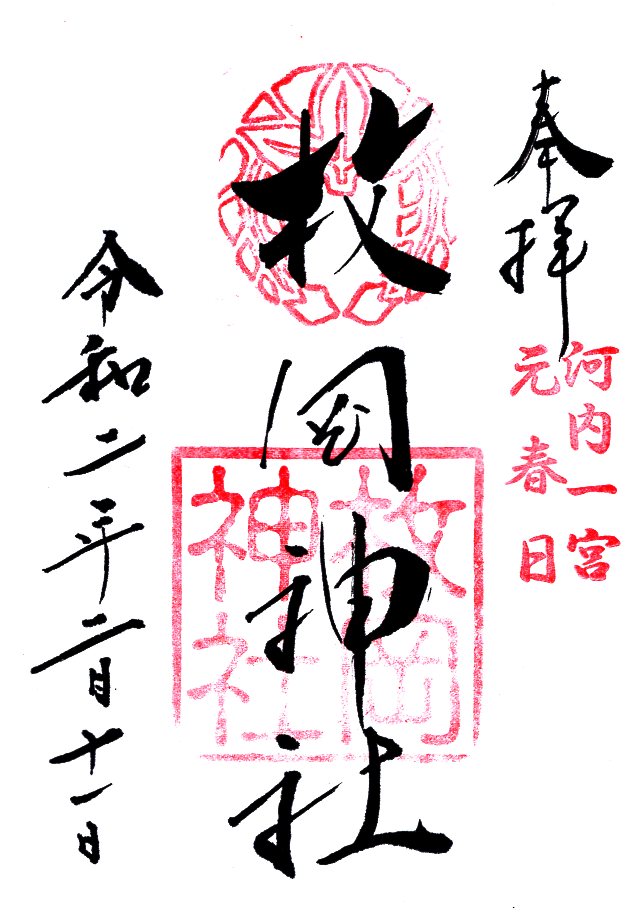 奉拝
河内一宮
元春日
枚岡神社
枚岡
神社
令和二年二月十一日